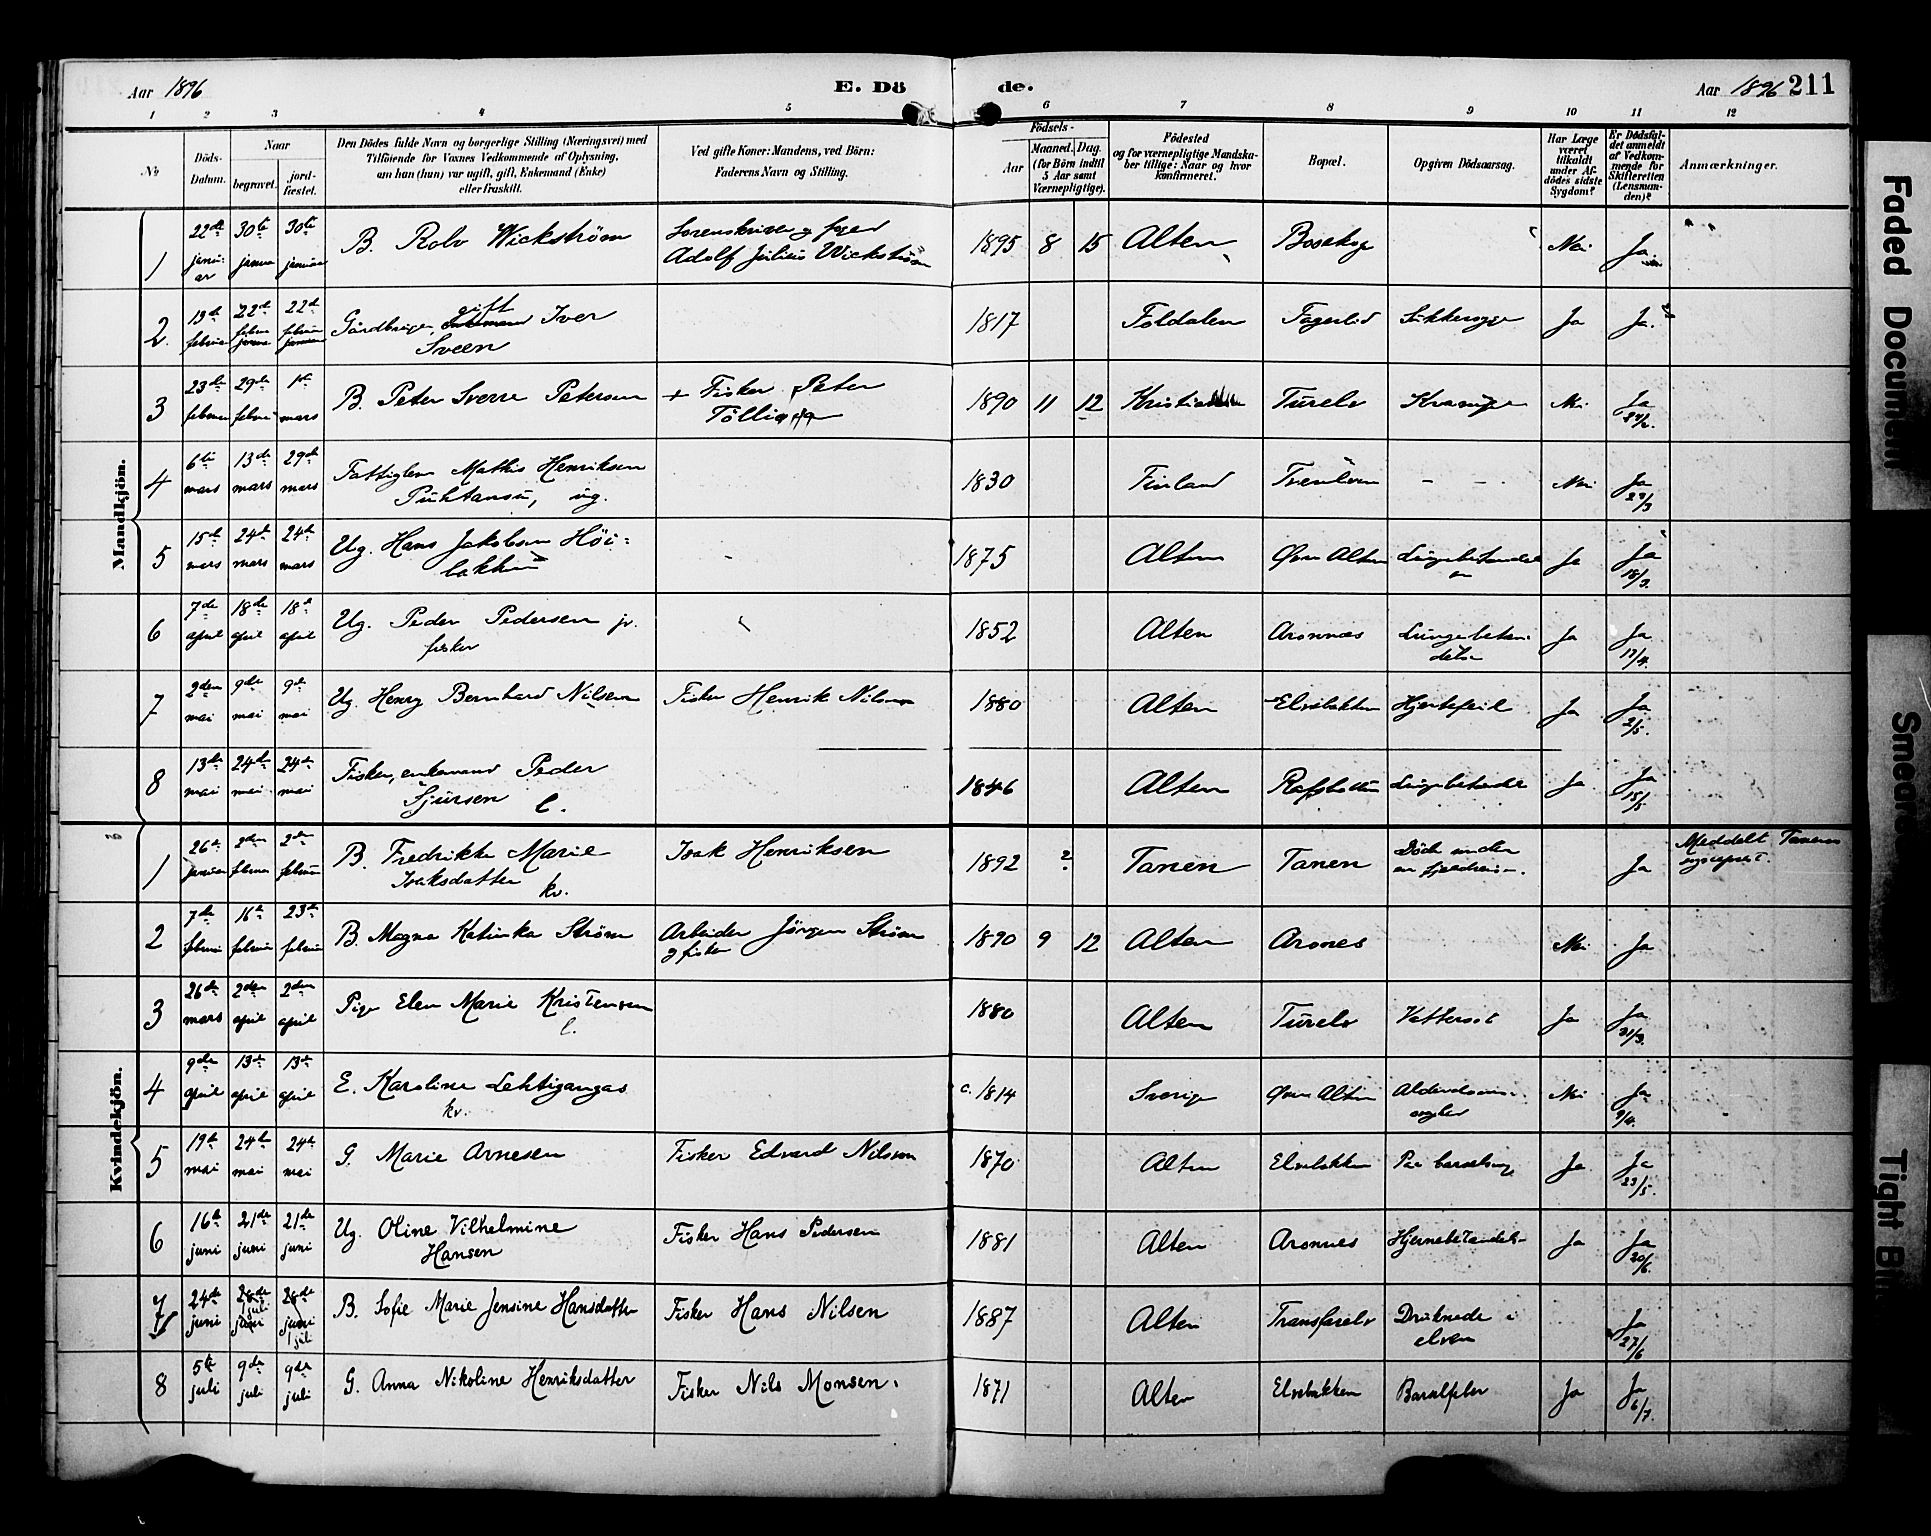 Aar 1896
E. Dö
de.
Aar 1896
211
1 2 3 4 5 6 7 8 9 10 11 12
No
Döds-
Datum.
Naar
begravet.
jord-
fæstet.
Den Dödes fulde Navn og borgerlige Stilling (Næringsvei) med
Tilföiende for Voxnes Vedkommende af Oplysning,
om han (hun) var ugift, gift, Enkemand (Enke)
eller fraskilt.
Ved gifte Koner: Mandens, ved Börn:
Faderens Navn og Stilling.
Födsels-
Aar
Maaned. Dag.
(for Börn indtil
5 Aar samt
Værnepligtige).
Födested
og for værnepligtige Mandska-
ber tillige: Naar og hvor
konfirmeret.
Bopæl.
Opgiven Dödsaarsag.
Har Læge
været
tilkaldt
under Af-
dödes sidste
Sygdom?
Er Dödsfal-
det anmeldt
af Vedkom-
mende for
Skifteretten
(Lensman-
den)?
Anmærkninger.
Mandkjön.
1 22de januar 30te januar 30te januar B. Rolv Wickstrøm Sorenskriver og foged
Adolf Julius Wickstrøm 1895 8 15 Alten Bosekop Nei Ja
2. 19de februar 22de februar 22de februar Gårdbruger, gift Iver
Sveen 1817 Foldalen Fagerlid Sukkersyge Ja Ja.
3 23de februar 29de februar 1ste mars B. Peter Sverre Petersen + Fisker Peter 1890 11 12 Turelv Nei Ja
4 6te mars 13de mars 29de mars Fattiglem Mathis Henriksen
ug. 1830 Finland - - Nei Ja
23/3
5 15de mars 24de mars 24de mars Ug. Hans Jakobsen Høi-
bakken 1875 Alten Øvre Alten Lungebetændelse Ja Ja
18/3.
6 7de april 18de april 18de april Ug. Peder Pedersen jr.
fisker 1852 Alten Aronnes Lungebetæn-
delse Ja Ja
13/4.
7 2den mai 9de mai 9de mai Ug Henry Bernhard Nilsen Fisker Henrik Nilsen 1880 Alten Elvebakken Hjertefeil Ja Ja
2/5.
8 13de mai 24de mai 24de mai Fisker, enkemand Peder
Sjursen l. 1846 Alten Rafsbotten Lungebetændelse Ja Ja
15/5
Kvindekjön.
1 26de januar 2den februar 2den februar B. Fredrikke Marie
Isaksdatter kv. Isak Henriksen 1892 ? Tanen Tanen Døde under
en fjeldreise. Ja Meddelt Tanens
sogneprest.
2 7de februar 16de februar 23de februar B. Magna Katinka Strøm Arbeider Jørgen Strøm
og fisker 1890 9 12 Alten Aronnes Nei Ja
3 26de mars 2den april 2den april Pige Elen Marie Kristensen
l. 1880 Alten Turelv Vattersot Ja Ja
31/3.
4 9de april 13de april 13de april E. Karoline Lehtigangas
kv. c. 1814 Sverige Øvre Alten Alderdoms- Nei Ja
9/4.
5 19de mai 24de mai 24de mai G. Marie Arnesen Fisker Edvard Nilsen 1870 Alten Elvebakken Paa barselseng Ja Ja
23/5.
6 16de juni 21de juni 21de juni Ug. Oline Vilhelmine
Hansen Fisker Hans Pedersen 1881 Alten Aronnes Hjernebetændelse Ja Ja
20/6.
7 24de juni 28de juni juli 28de juni 1 juli B. Sofie Marie Jensine Hansdatter Fisker Hans Nilsen 1887 Alten Transfarelv Druknede i
elven Ja
27/6
8 5te juli 9de juli 9de juli G. Anna Nikoline Henriksdatter Fisker Nils Monsen. 1871 Alten Elvebakken Barselfeber Ja Ja
6/7.
Faded Document
Smeared
Tight Bi